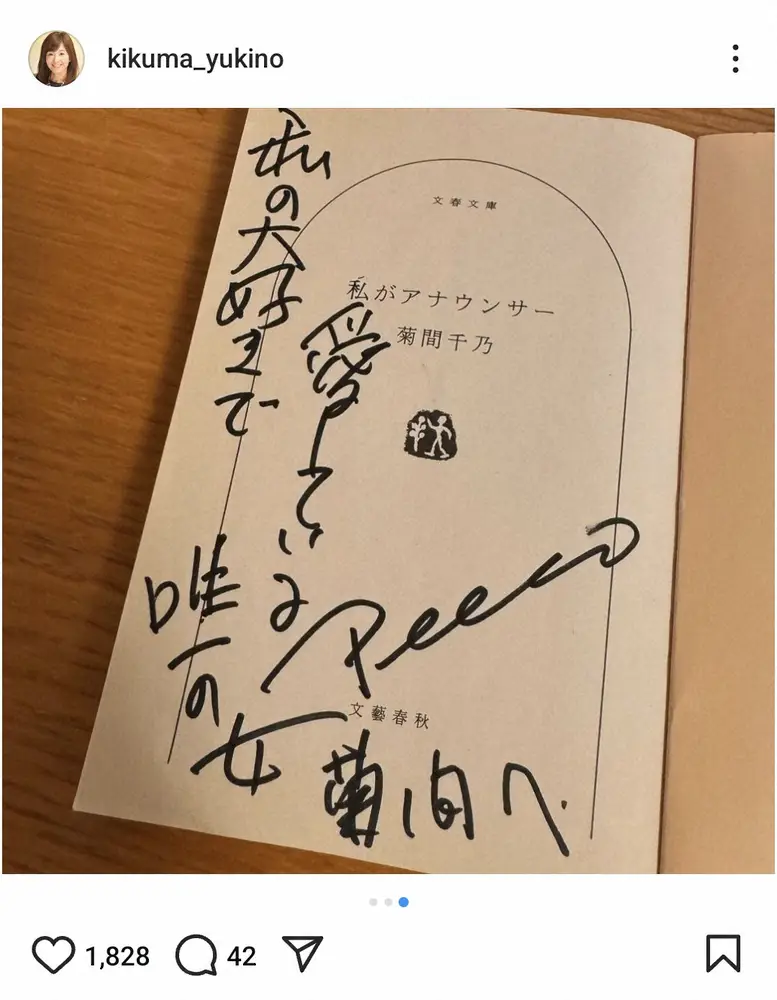 kikuma_yukino
文春文庫
私がアナウンサー
菊間千乃
文藝春秋
私の大好きで
愛している
唯一の女
Peeco
菊間へ.
1,828
42